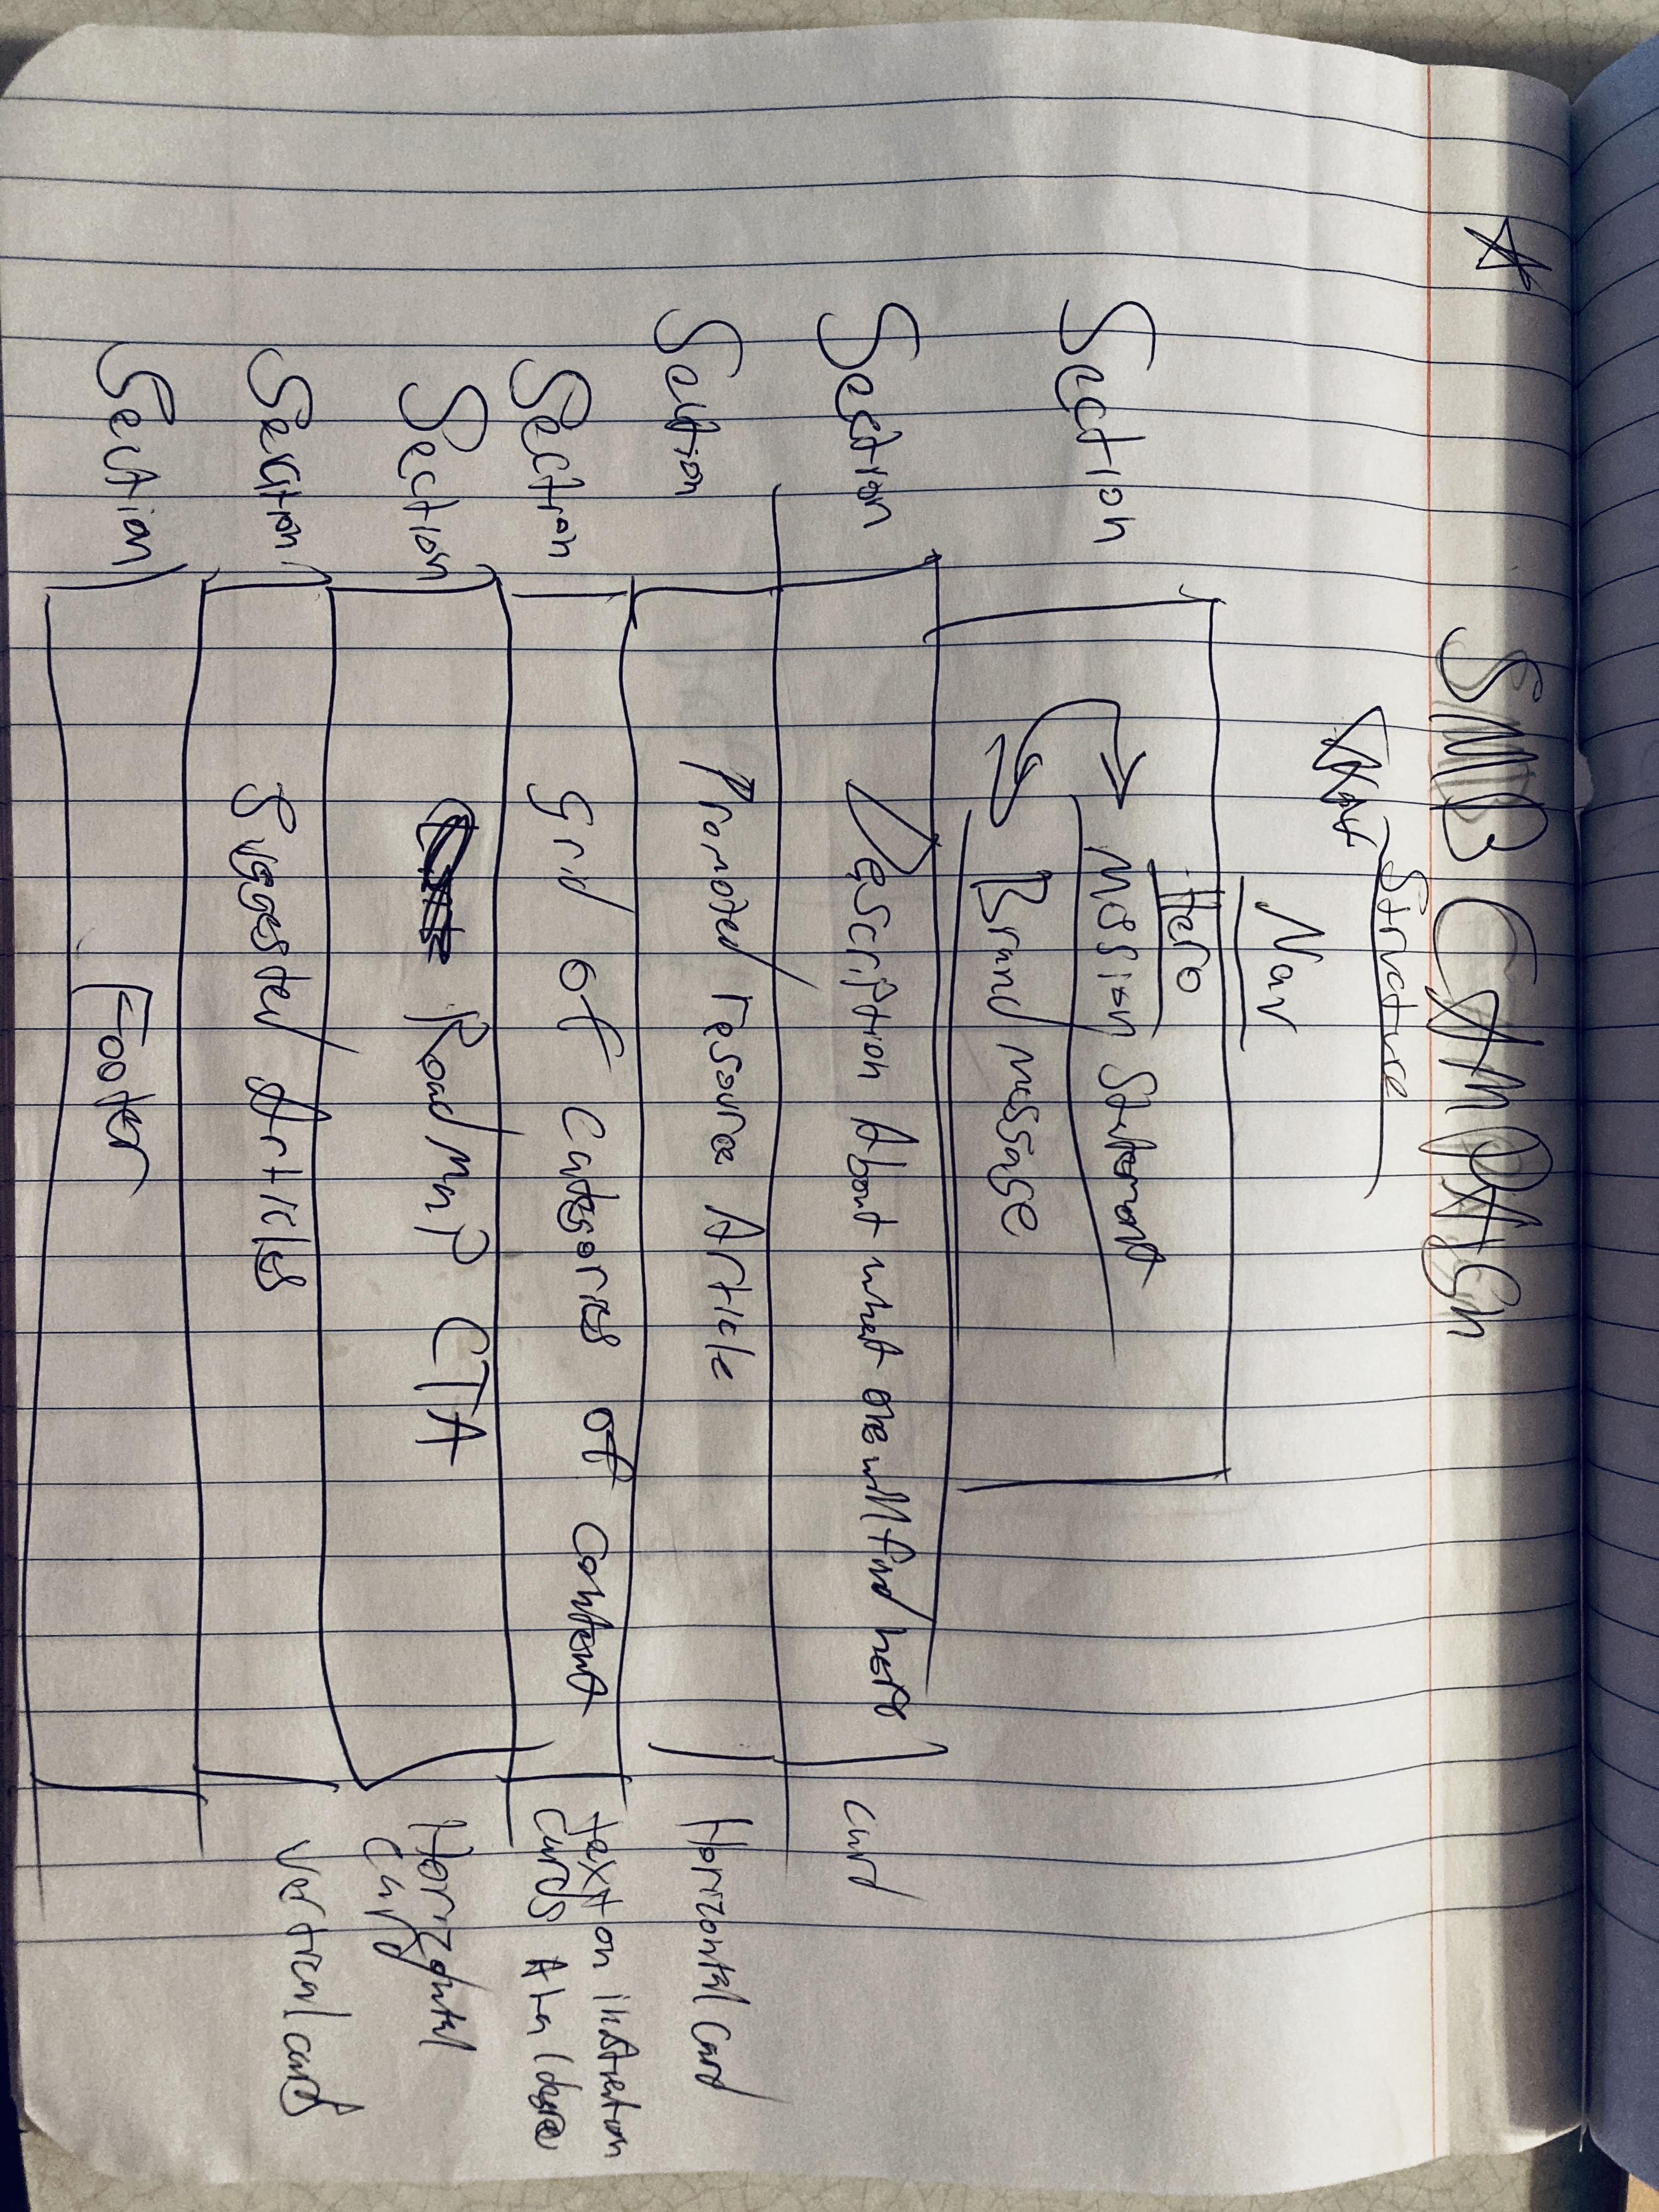 SMB CAMPAIGn
Structure
Nav
Hero
Section
Mission Statement
Brand message
Section
Description About what one will find here
card
Section
Promoted resource Article
Horizontal Card
Section
Grid of categories of content
text on
cards
Section
RoadMaP CTA
Horizontal
card
Section
Suggested Articles
Vertical cards
Section
Footer